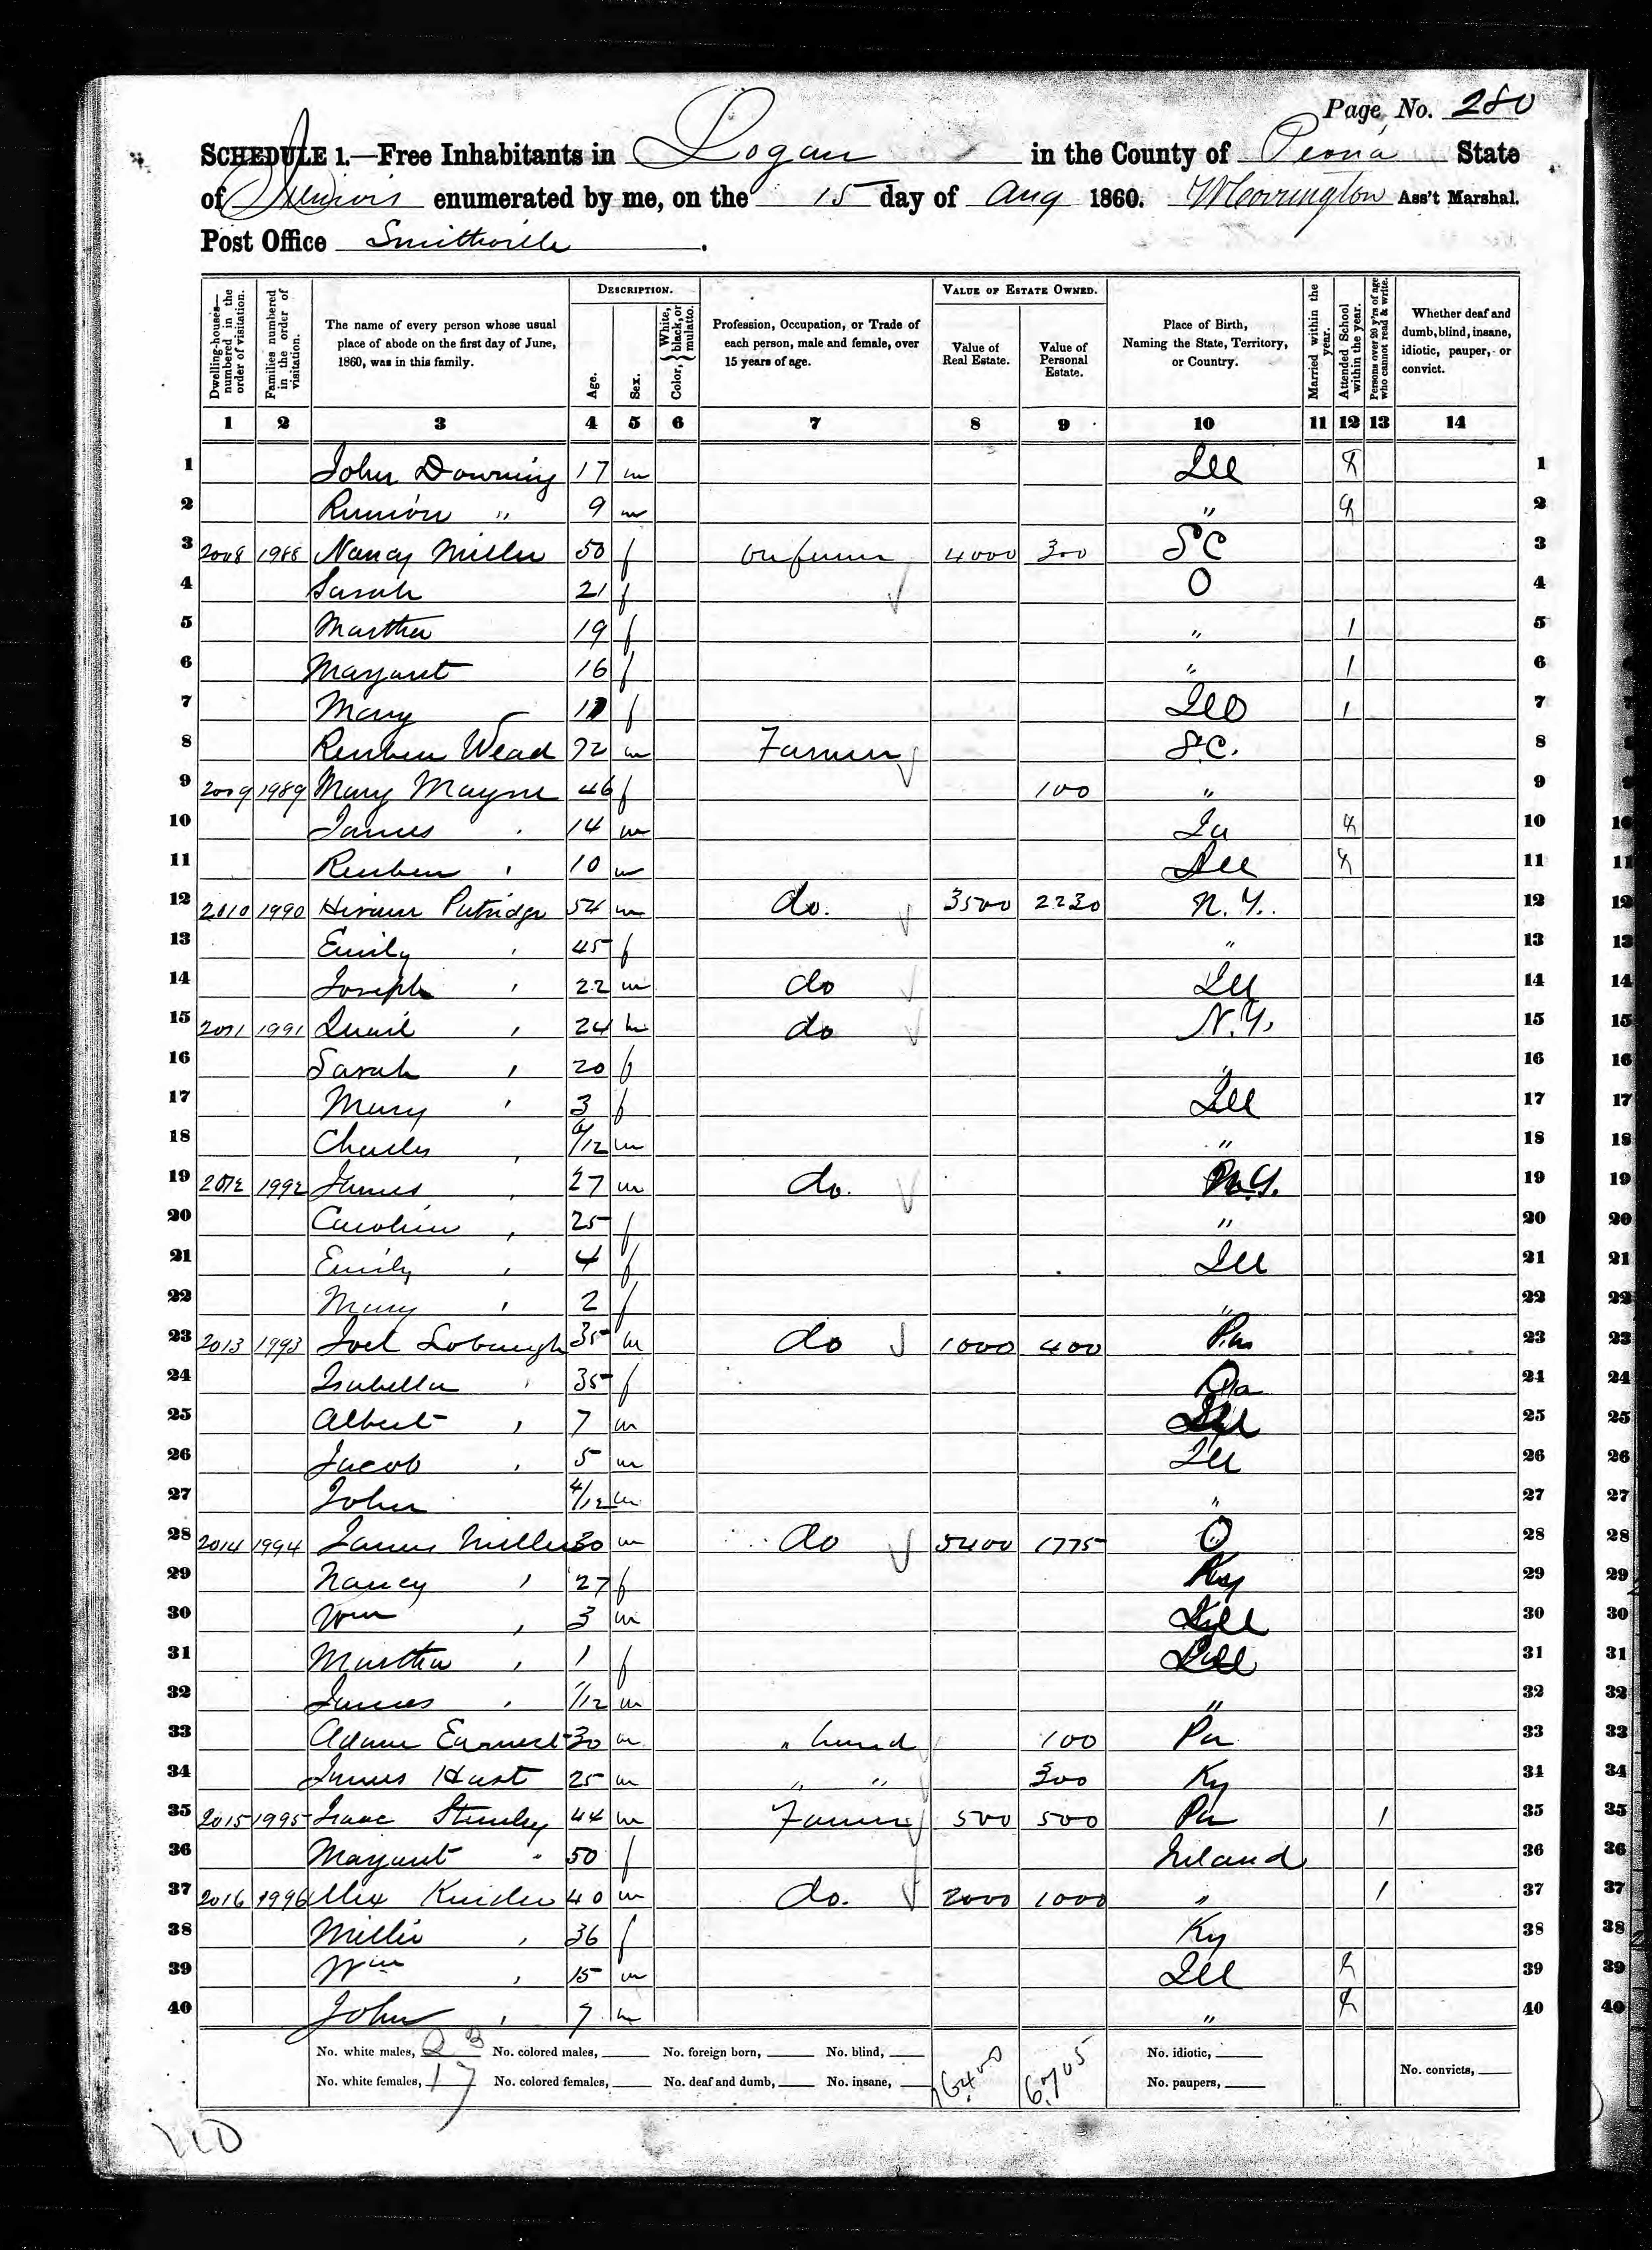 Page No. 280
SCHEDULE 1.—Free Inhabitants in Logan in the County of Peoria State
of Illinois enumerated by me, on the 15 day of Aug 1860. Ass't Marshal.
Post Office Smithville.
Dwelling-houses—numbered in the order of visitation.
Families numbered in the order of visitation.
The name of every person whose usual place of abode on the first day of June, 1860, was in this family.
DESCRIPTION.
Age.
Sex.
Color, White, black, or mulatto.
Profession, Occupation, or Trade of each person, male and female, over 15 years of age.
VALUE OF ESTATE OWNED.
Value of Real Estate.
Value of Personal Estate.
Place of Birth, Naming the State, Territory, or Country.
Married within the year.
Attended School within the year.
Persons over 20 y'rs of age who cannot read & write.
Whether deaf and dumb, blind, insane, idiotic, pauper, or convict.
1 2 3 4 5 6 7 8 9 10 11 12 13 14
1 John Downing 17 m Ill 1
2 " 9 m " 2
3 2008 1988 Nancy Miller 50 f 4000 300 SC 3
4 Sarah 21 f O 4
5 Martha 19 f " / 5
6 Margaret 16 f " / 6
7 Mary f Ill / 7
8 Reuben Wead 72 m Farmer S.C. 8
9 2009 1989 Mary Mayne 46 f 100 " 9
10 James 14 m Ia 10
11 Reuben 10 m Ill 11
12 2010 1990 Hiram Putridge 54 m do. 3500 2230 N.Y. 12
13 Emily 45 f " 13
14 Joseph 22 m do Ill 14
15 2011 1991 24 m do N.Y. 15
16 Sarah 20 f " 16
17 Mary 3 f Ill 17
18 Charles 6/12 m " 18
19 2012 1992 James 27 m do. N.Y. 19
20 Caroline 25 f " 20
21 Emily 4 f Ill 21
22 Mary 2 f " 22
23 2013 1993 Joel Lobaugh 35 m do 1000 400 Pa 23
24 Isabella 35 f Pa 24
25 Albert 7 m Ill 25
26 Jacob 5 m Ill 26
27 John 4/12 m " 27
28 2014 1994 James Miller 30 m do 5400 1775 O 28
29 Nancy 27 f Ky 29
30 Wm 3 m Ill 30
31 Martha 1 f Ill 31
32 James 1/12 m " 32
33 Adam Earnest 30 m " hand 100 Pa 33
34 James Hast 25 m " " 300 Ky 34
35 2015 1995 Isaac Stanley 44 m Farmer 500 500 Pa / 35
36 Margaret " 50 f Ireland 36
37 2016 1996 Alex 40 m do. 2000 1000 " / 37
38 Millie 36 f Ky 38
39 Wm 15 m Ill 39
40 John 7 m " 40
No. white males, 23 No. colored males, No. foreign born, No. blind, 16400 6705 No. idiotic,
No. white females, 17 No. colored females, No. deaf and dumb, No. insane, No. paupers, No. convicts,